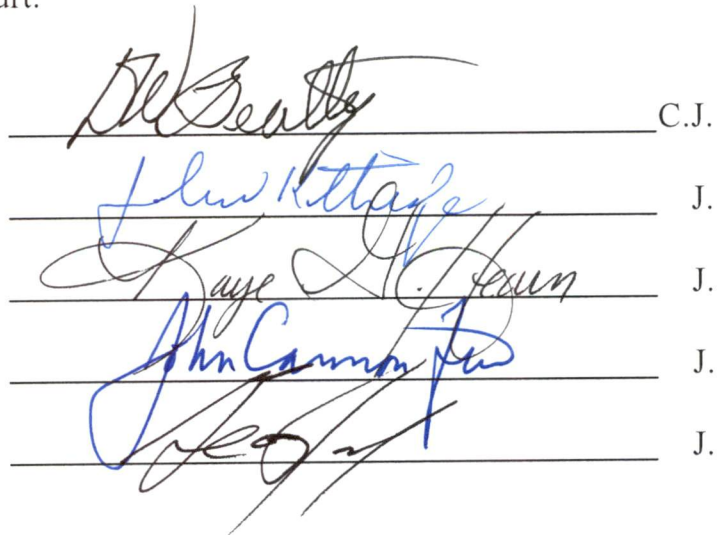 urt.
DWBeatty C.J.
John Kittredge J.
Kaye G. Hearn J.
John Cannon Few J.
J.